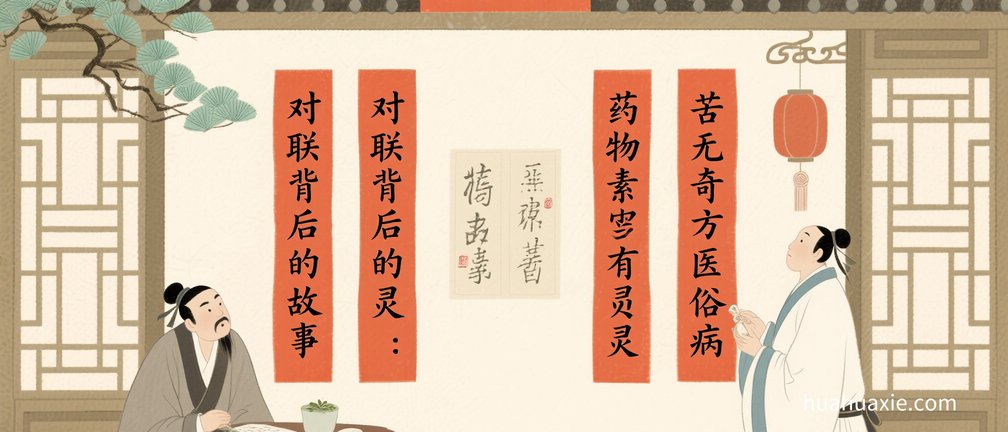 苦无奇方医俗病
药物素有灵灵
对联背后的灵：
对联背后的故事
huahuaxie.com